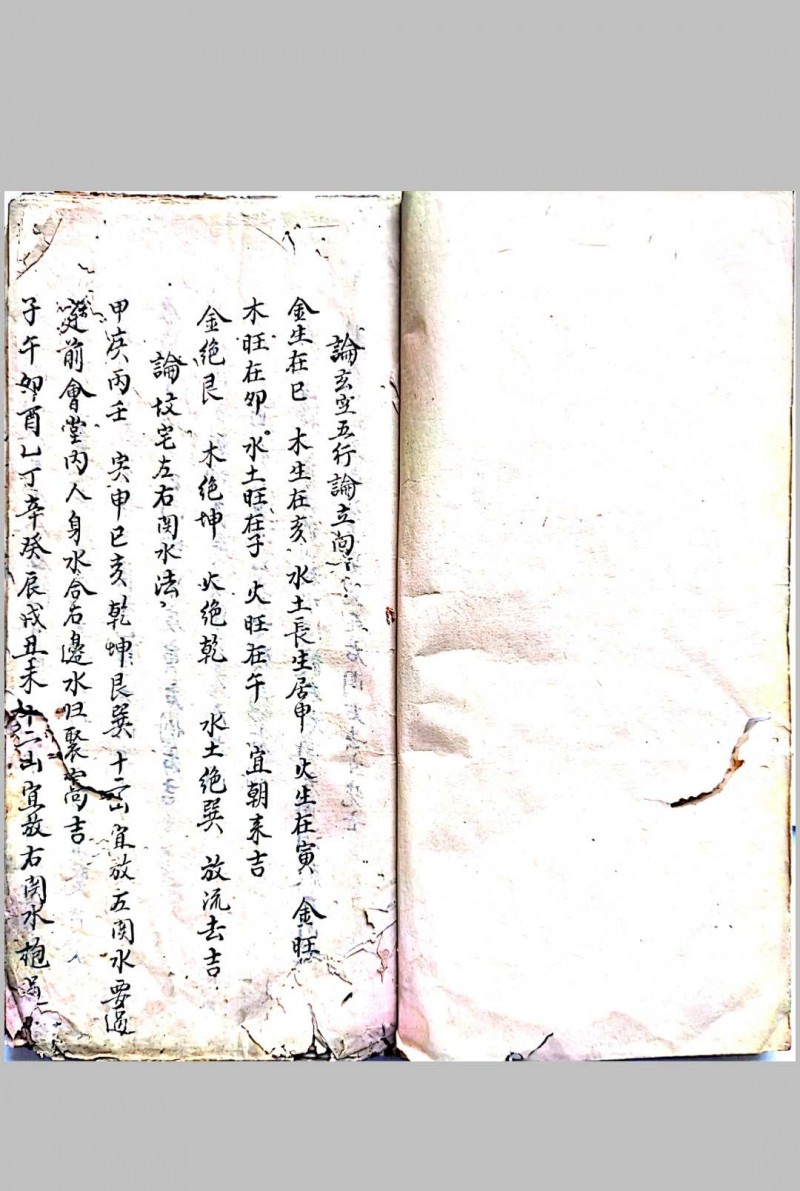 論玄空五行論立向
金生在巳 木生在亥 水土長生居申 火生在寅 金旺
木旺在卯 水土旺在子 火旺在午 宜朝来吉
金绝艮 木绝坤 火绝乾 水土绝巽 放流去吉
論坟宅左右関水法
甲庚丙壬 寅申巳亥 乾坤艮巽 十二山宜放左関水要過
前會堂内人身水合右邊水归聚為吉
子午卯酉乙丁辛癸辰戌丑未十二山宜放右関水抱